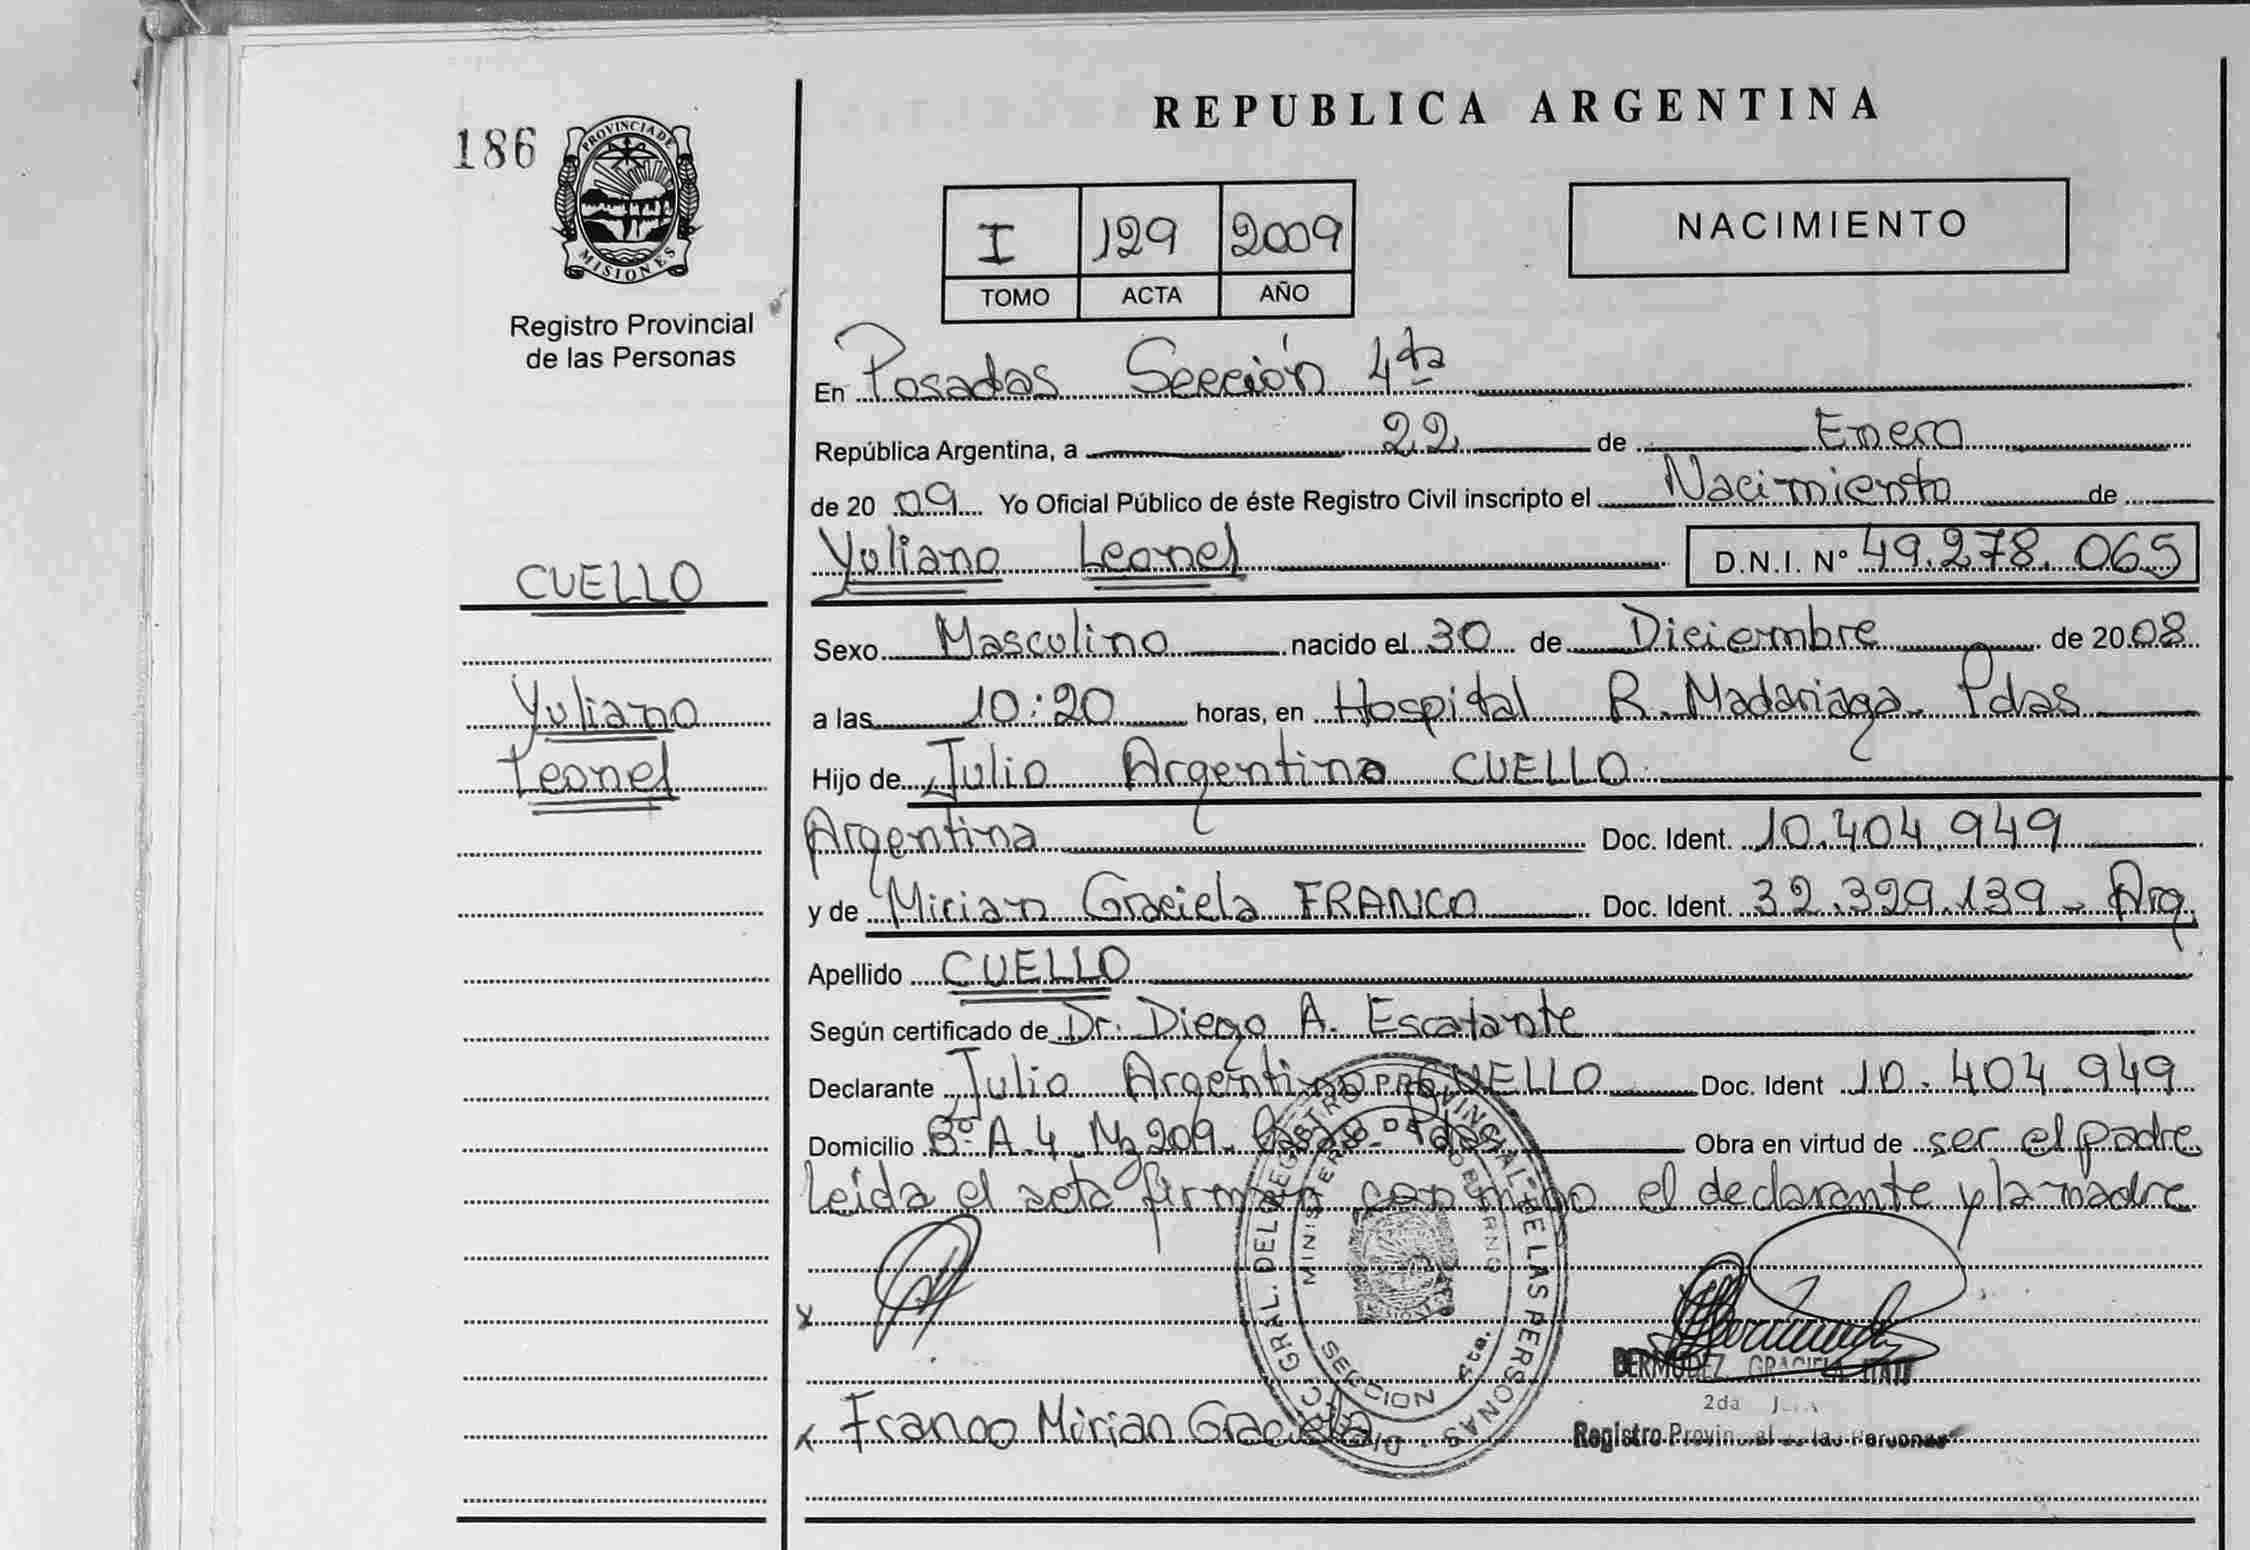 REPUBLICA ARGENTINA
186
PROVINCIA DE
MISIONES
Registro Provincial
de las Personas
I 129 2009
TOMO ACTA AÑO
NACIMIENTO
En Posadas Sección 4ta
República Argentina, a 22 de Enero
de 20 09 Yo Oficial Público de éste Registro Civil inscripto el Nacimiento de
CUELLO
Yuliano Leonel D.N.I. Nº 49.278.065
Sexo Masculino nacido el 30 de Diciembre de 20 08
Yuliano
a las 10:20 horas, en Hospital R. Madariaga. Pdas
Leonel
Hijo de Julio Argentino CUELLO
Argentina Doc. Ident. 10.404.949
y de Mirian Graciela FRANCO Doc. Ident. 32.329.139 - Arg.
Apellido CUELLO
Según certificado de Dr. Diego A. Escalante
Declarante Julio Argentino CUELLO Doc. Ident 10.404.949
Domicilio Bº A.4 Mz 209. Pdas Obra en virtud de ser el padre
Leida el acta firman conmigo el declarante y la madre
DIRECC. GRAL. DEL REGISTRO PROVINCIAL DE LAS PERSONAS
MINISTERIO DE GOBIERNO
SECCION 4ta.
BERMUDEZ GRACIELA ITATI
2da
Registro Provincial de las Personas
x Franco Mirian Graciela